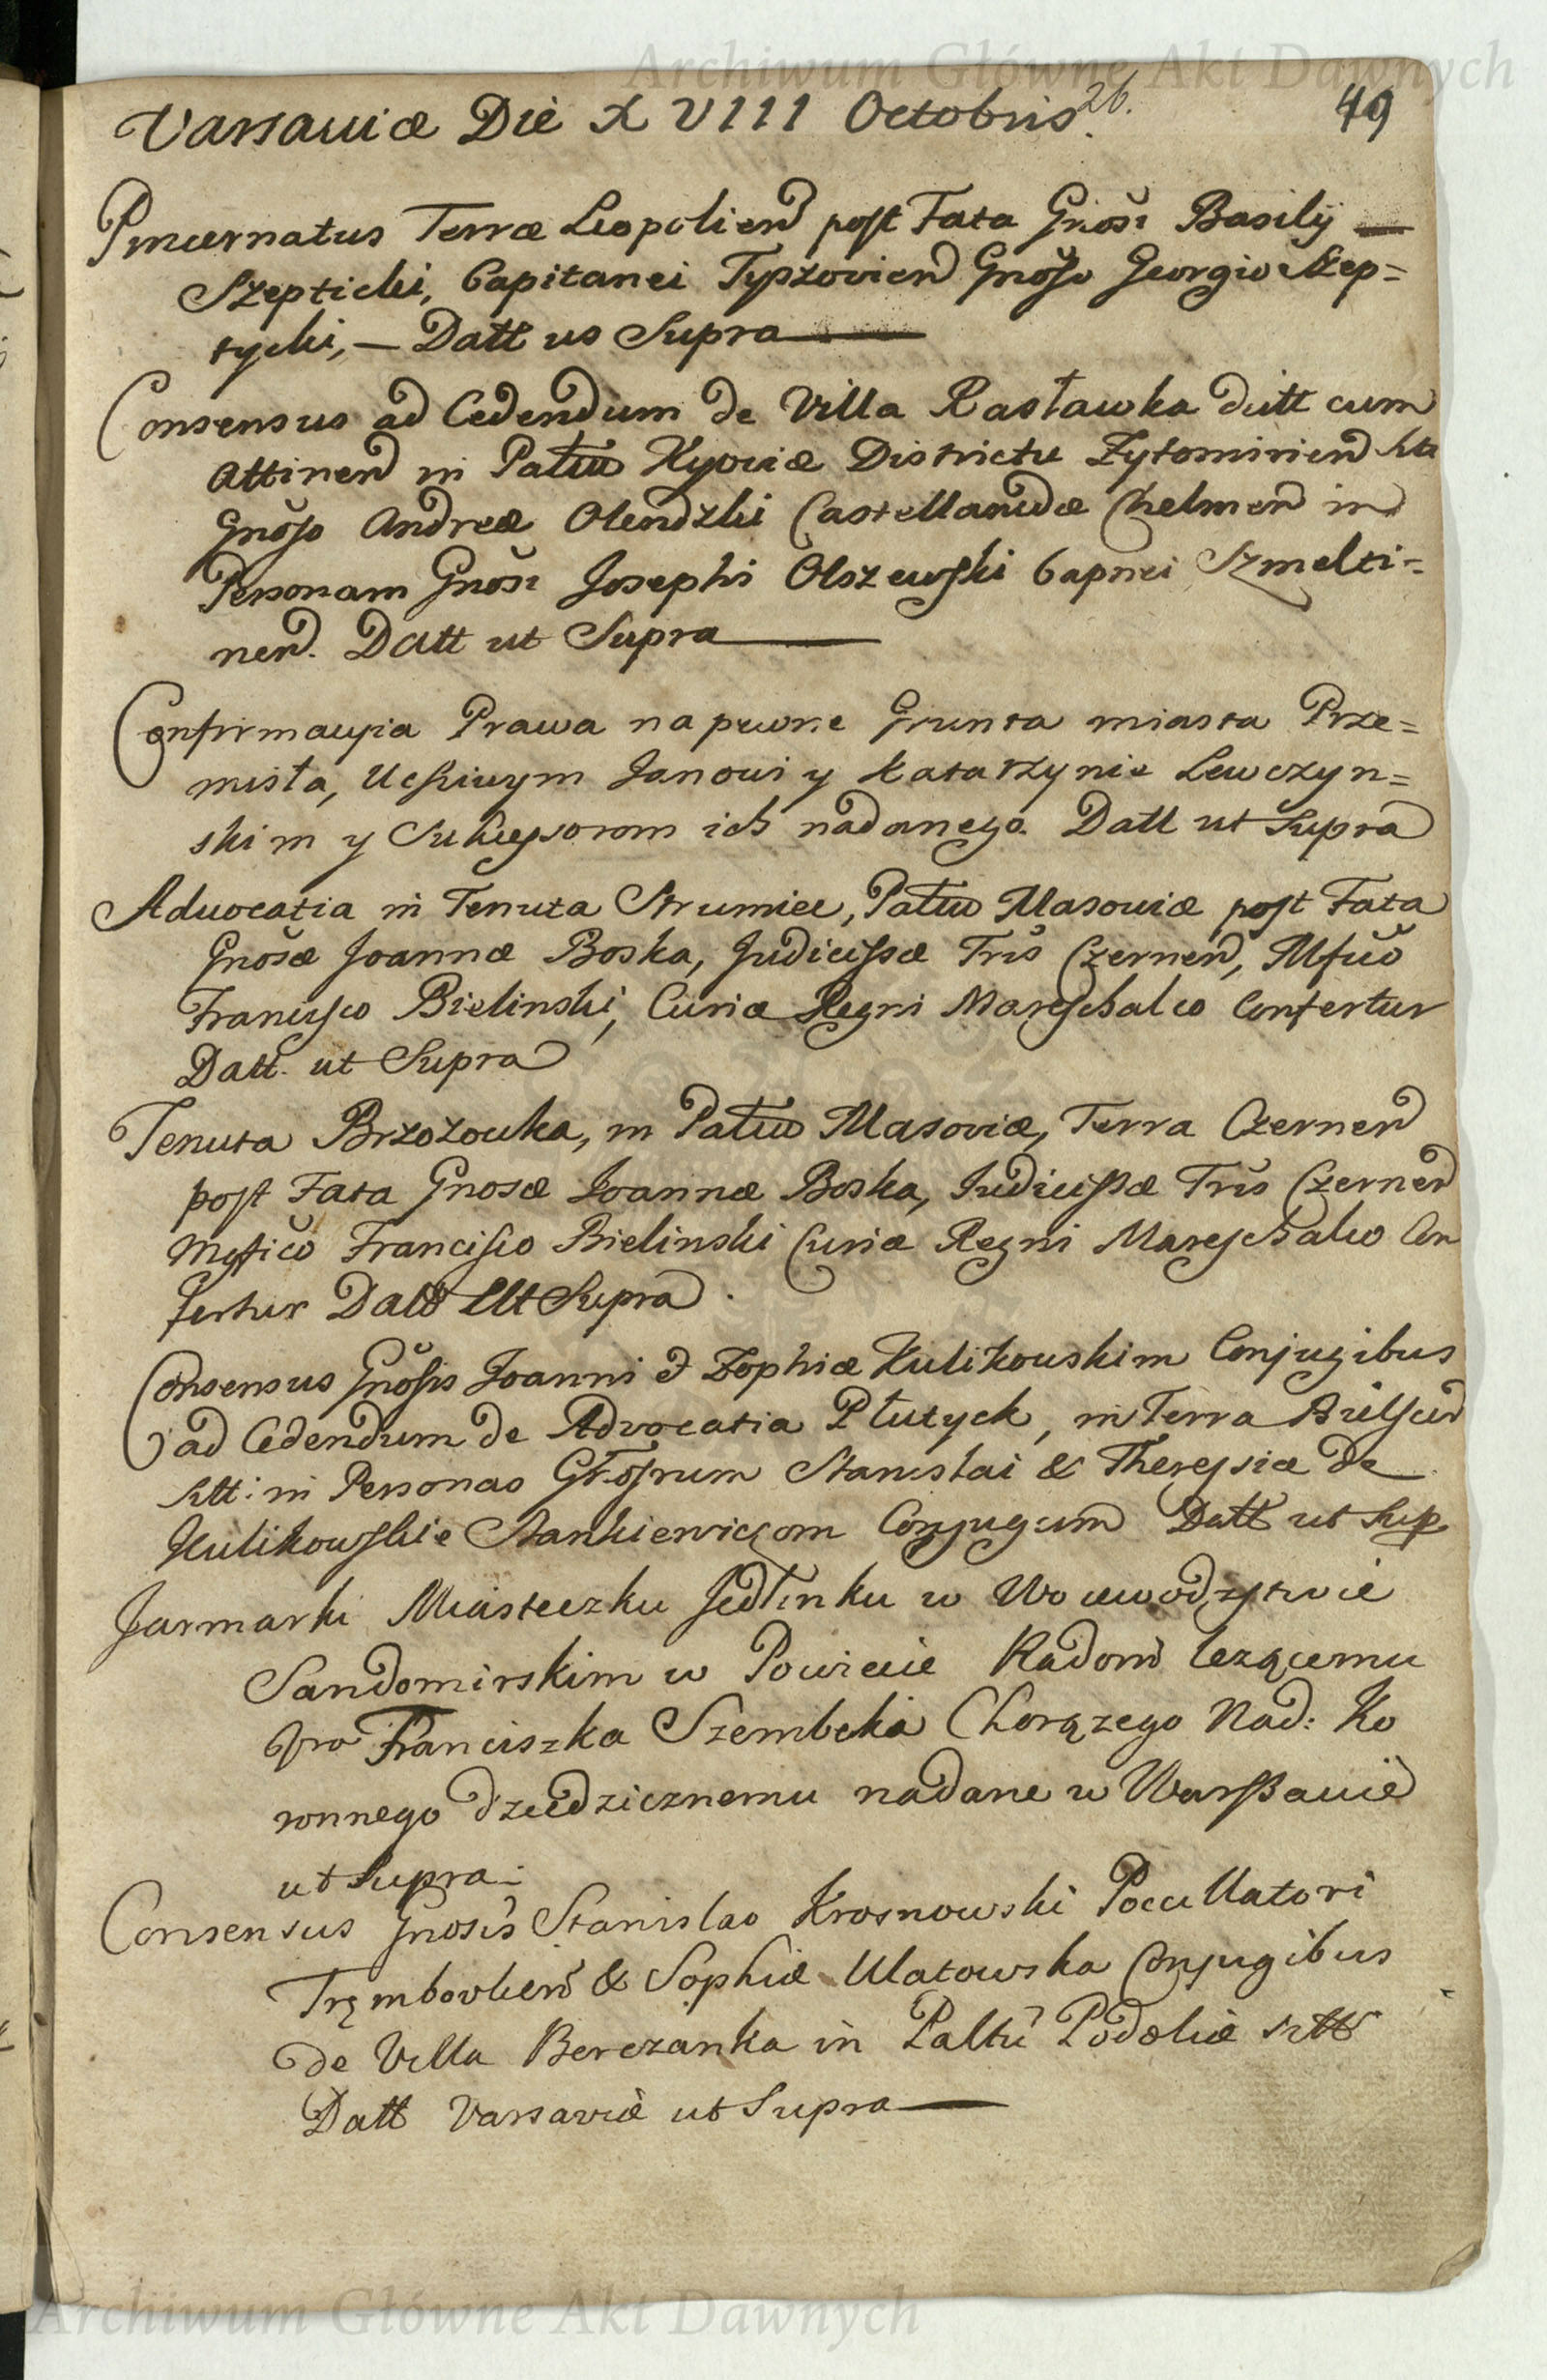 Archiwum Główne Akt Dawnych
Varsaviæ Die XVIII Octobris 26. 49
Pincernatus Terræ Leopolien̄ post Fata Gnōsi Basilÿ
Szepticki, Capitanei Typzovien̄ Gnōso Georgio Szep=
tycki, — Datt us Supra
Consensus ad Cedendum de Villa Rasławka dictt cum
Attinen̄ in Pałtū Kyoviæ Districtu Zytomirien̄
Gnōso Andreæ Olendzki Castellanidæ Chelmen̄ in
Personam Gnōsi Josephi Olszewski Capnei Szmelti=
nen̄. Datt ut Supra
Confirmacyia Prawa na pewne Grunta miasta Prze=
misla, Ucściwym Janowi y Katarzynie Lewczyn=
skim y Sukcessorom ich nadanego. Datt ut Supra
Advocatia in Tenuta Strumiec, Pałtū Masoviæ post Fata
Gnosæ Joannæ Boska, Judicissæ Tris Czernen̄, Mfcō
Francisco Bielinski, Curiæ Regni Mareschalco Confertur
Datt. ut Supra
Tenuta Brzozowka, in Pałtū Masoviæ, Terra Czernen̄
post Fata Gnosæ Joannæ Boska, Judicissæ Tris Czernen̄
Mgficō Francisco Bielinski Curiæ Regni Mareschalco Con
fertur Datt Ut Supra.
Consensus Gnōsis Joanni & Zophiæ Kulikowskim Conjugibus
ad Cedendum de Advocatia Płutyck, in Terra Bielscen̄
sitt: in Personas Gnōsrum Stanislai & Theresiæ de
Kulikowskie Stankiewiczom Conjugum Datt ut Sup
Jarmarki Miasteczku Jedlinku w Wowewodzstwie
Sandomirskim w Powiecie Radom̄ lezącemu
Gro Franciszka Szembeka Chorązego Nad: Ko
ronnego dziedzicznemu nadane w Warszawie
ut Supra.
Consensus Gnosis Stanislao Krosnowski Pocillatori
Trębowlien̄ & Sophiæ Ulatowska Conjugibus
de Villa Berezanka in Paltū Podoliæ sitt
Datt Varsaviæ ut Supra
Archiwum Główne Akt Dawnych